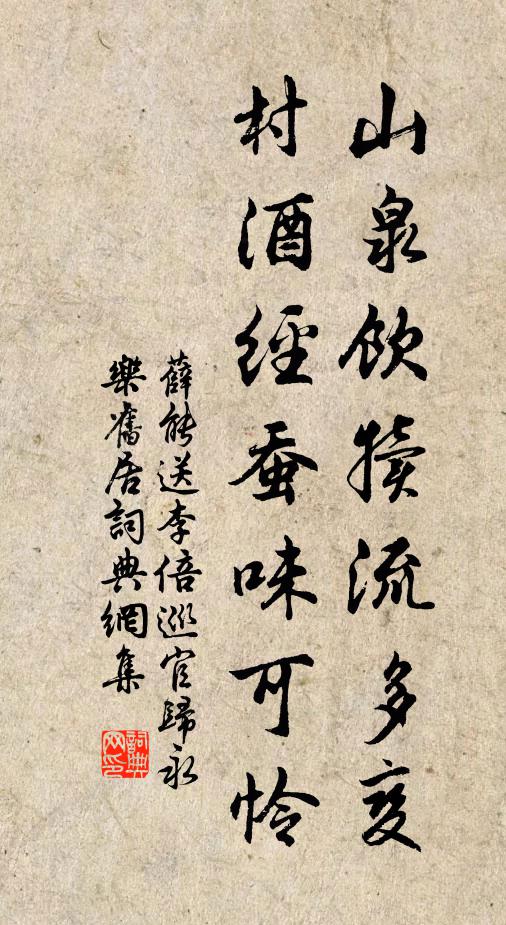 山泉飲犢流多变
村酒經蚕味可怜
薛能送李倍巡官歸永
樂舊居詞典網集
詞典
网印